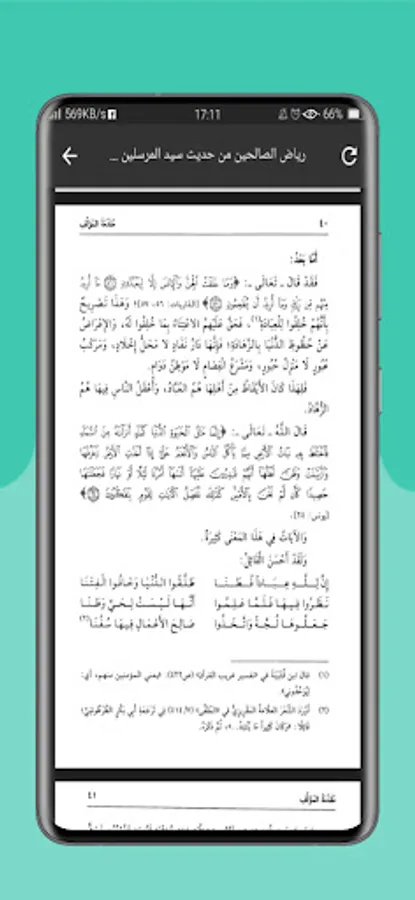 569KB/s 17:11 66%
رياض الصالحين من حديث سيد المرسلين ...
٤٠ مقدمة المؤلف
أَمَّا بَعْدُ:
فَقَدْ قَالَ ـ تَعَالَى ـ: ﴿وَمَا خَلَقْتُ الْجِنَّ وَالْإِنسَ إِلَّا لِيَعْبُدُونِ ۝ مَا أُرِيدُ
مِنْهُم مِّن رِّزْقٍ وَمَا أُرِيدُ أَن يُطْعِمُونِ ۝﴾ [الذاريات: ٥٦، ٥٧] وَهَذَا تَصْرِيحٌ
بِأَنَّهُمْ خُلِقُوا لِلْعِبَادَةِ(١)، فَحَقَّ عَلَيْهِمُ الاعْتِنَاءُ بِمَا خُلِقُوا لَهُ، وَالإِعْرَاضُ
عَنْ حُظُوظِ الدُّنْيَا بِالزَّهَادَةِ؛ فَإِنَّهَا دَارُ نَفَادٍ لَا مَحَلُّ إِخْلَادٍ، وَمَرْكَبُ
عُبُورٍ لَا مَنْزِلُ حُبُورٍ، وَمَشْرَعُ انْفِصَامٍ لَا مَوْطِنُ دَوَامٍ.
فَلِهَذَا كَانَ الأَيْقَاظُ مِنْ أَهْلِهَا هُمُ العُبَّادُ، وَأَعْقَلُ النَّاسِ فِيهَا هُمُ
الزُّهَّادُ.
قَالَ اللَّهُ ـ تَعَالَى ـ: ﴿إِنَّمَا مَثَلُ الْحَيَاةِ الدُّنْيَا كَمَاءٍ أَنزَلْنَاهُ مِنَ السَّمَاءِ
فَاخْتَلَطَ بِهِ نَبَاتُ الْأَرْضِ مِمَّا يَأْكُلُ النَّاسُ وَالْأَنْعَامُ حَتَّى إِذَا أَخَذَتِ الْأَرْضُ زُخْرُفَهَا
وَازَّيَّنَتْ وَظَنَّ أَهْلُهَا أَنَّهُمْ قَادِرُونَ عَلَيْهَا أَتَاهَا أَمْرُنَا لَيْلًا أَوْ نَهَارًا فَجَعَلْنَاهَا
حَصِيدًا كَأَن لَّمْ تَغْنَ بِالْأَمْسِ كَذَلِكَ نُفَصِّلُ الْآيَاتِ لِقَوْمٍ يَتَفَكَّرُونَ ۝﴾
[يونس: ٢٤].
وَالآيَاتُ فِي هَذَا المَعْنَى كَثِيرَةٌ.
وَلَقَدْ أَحْسَنَ القَائِلُ:
إِنَّ لِلَّهِ عِبَادًا فُطَنَا طَلَّقُوا الدُّنْيَا وَخَافُوا الفِتَنَا
نَظَرُوا فِيهَا فَلَمَّا عَلِمُوا أَنَّهَا لَيْسَتْ لِحَيٍّ وَطَنَا
جَعَلُوهَا لُجَّةً وَاتَّخَذُوا صَالِحَ الأَعْمَالِ فِيهَا سُفُنَا(٢)
(١) قال ابن قتيبة في «تفسير غريب القرآن» : «يعني المؤمنين منهم، أي:
ليوحدوني».
(٢) في ترجمة أبي بكر الطرطوشي
٤١ مقدمة المؤلف